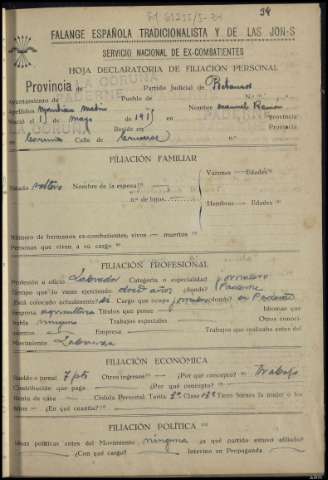 39
FALANGE ESPAÑOLA TRADICIONALISTA Y DE LAS JON-S
SERVICIO NACIONAL DE EX-COMBATIENTES
HOJA DECLARATORIA DE FILIACIÓN PERSONAL
Provincia de LA CORUÑA Partido Judicial de Betanzos
Ayuntamiento de PADERNE Pueblo de
Apellidos Nombre Manuel Ramón
Nació el 15 Mayo de 1915 en Provincia
Reside en Provincia
Coruña Calle de
FILIACIÓN FAMILIAR
Estado soltero Nombre de la esposa
n.º de hijos
Varones — Edades
Hembras — Edades
Número de hermanos ex-combatientes, vivos — muertos
Personas que viven a su cargo
FILIACIÓN PROFESIONAL
Profesión u oficio Labrador Categoría o especialidad jornalero
Tiempo que lo viene ejerciendo doce años ¿dónde? Paderne
Está colocado actualmente si Cargo que ocupa jornalero ¿dónde? en Paderne
Empresa agricultura Títulos que posee Idiomas que
habla ninguno Trabajos especiales Otros conoci-
mientos — Empresa — Trabajos que realizaba antes del
Movimiento Labranza
FILIACIÓN ECONÓMICA
Sueldo o jornal 7 pts Otros ingresos — ¿Por qué concepto? Trabajo
Contribución que paga — ¿Por qué concepto?
Renta de casa — Cédula Personal Tarifa Clase 13ª Tiene bienes la mujer o los
hijos — ¿En qué cuantía?
FILIACIÓN POLÍTICA
Ideas políticas antes del Movimiento ninguna en qué partido estuvo afiliado
¿Con qué cargo? Intervino en Propaganda